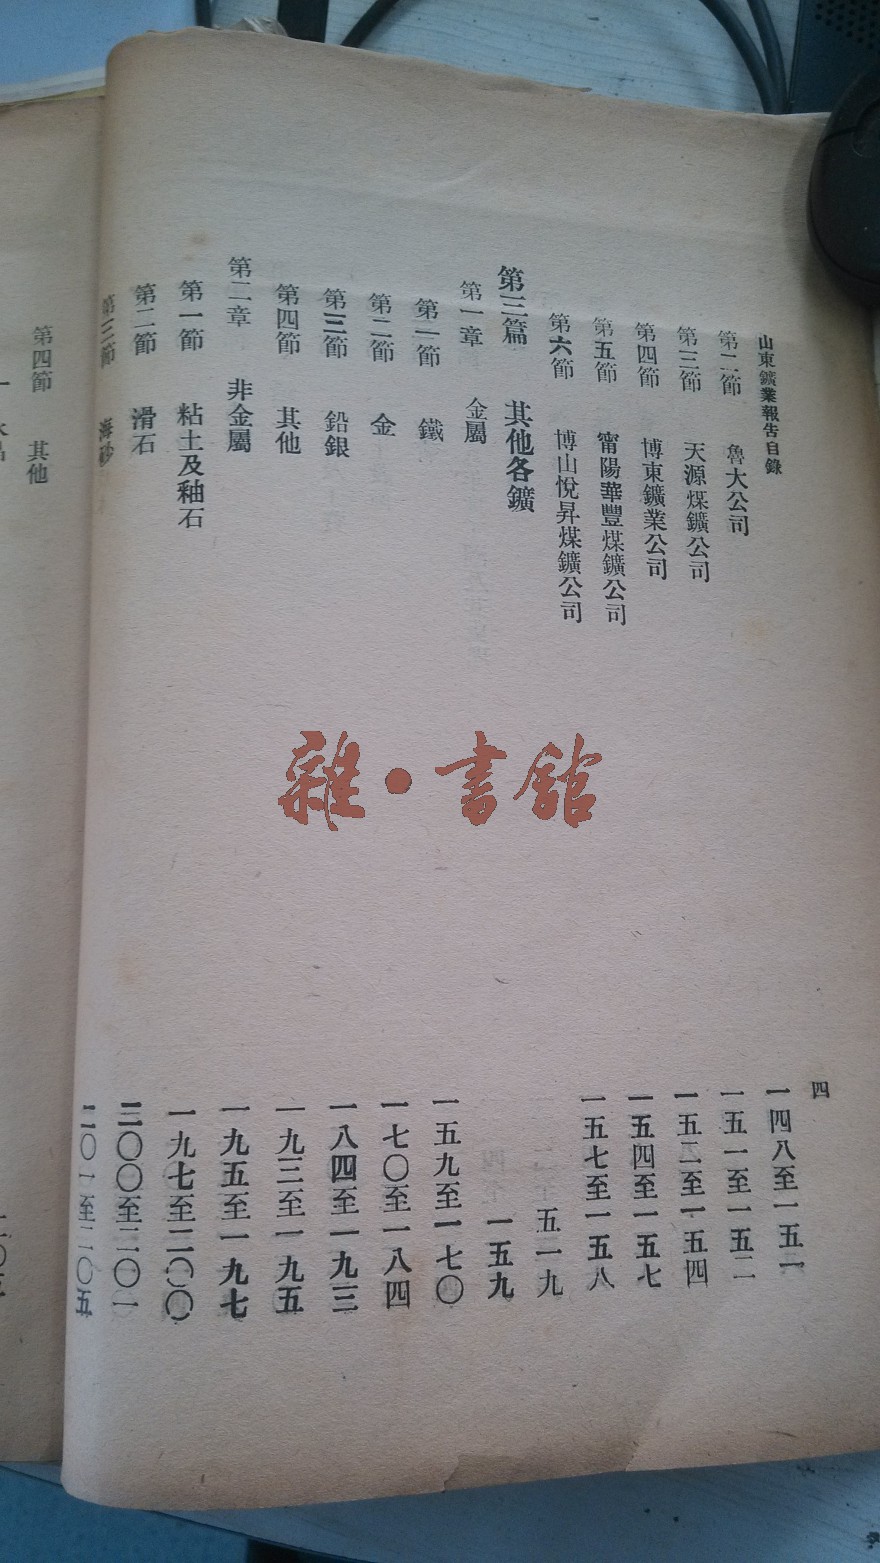 山東鑛業報告目錄 四
第二節 魯大公司 一四八至一五一
第三節 天源煤鑛公司 一五一至一五二
第四節 博東鑛業公司 一五二至一五四
第五節 甯陽華豐煤鑛公司 一五四至一五七
第六節 博山悅昇煤鑛公司 一五七至一五八
第三篇 其他各鑛 五一九
第一章 金屬 一五九
第一節 鐵 一五九至一七〇
第二節 金 一七〇至一八四
第三節 鉛銀 一八四至一九三
第四節 其他 一九三至一九五
第二章 非金屬 一九五至一九七
第一節 粘土及釉石 一九七至二〇〇
第二節 滑石 二〇〇至二〇一
第三節 海砂 二〇一至二〇五
第四節 其他
雜·書館